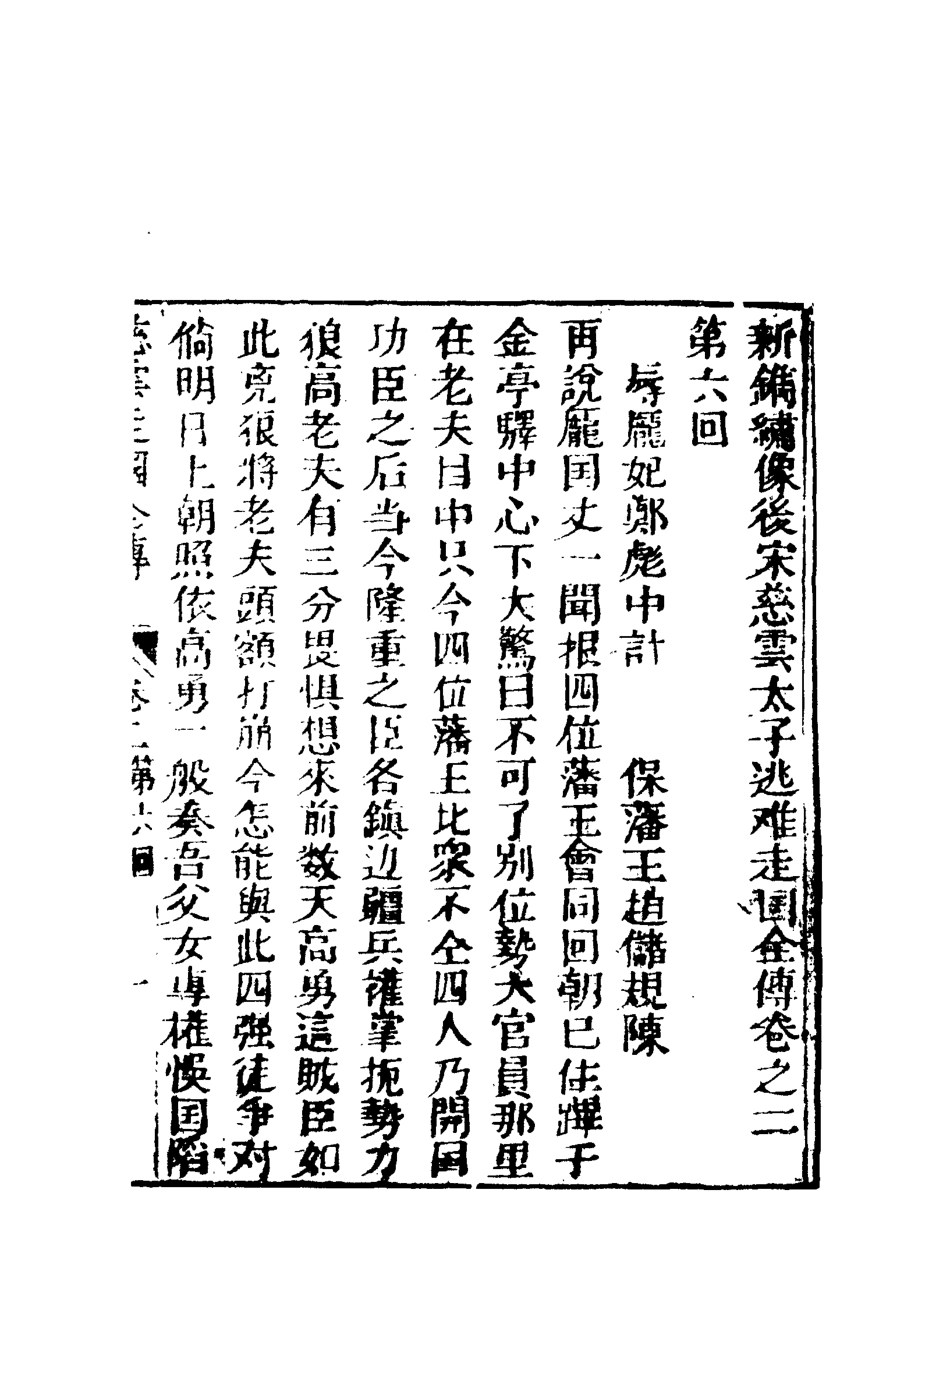 新鐫繡像後宋慈雲太子逃难走国全傳卷之二
第六回
辱龐妃鄭彪中計　保藩王趙儲規陳
再說龐国丈一聞报四位藩王會同回朝已住蹕于
金亭驛中心下大驚曰不可了别位勢大官員那里
在老夫目中只今四位藩王比衆不仝四人乃開国
功臣之后当今隆重之臣各鎮边疆兵權掌扼勢力
狼高老夫有三分畏惧想來前数天高勇這賊臣如
此克狠將老夫頭額打崩今怎能與此四强徒争对
倘明日上朝照依高勇一般奏吾父女專權悞国陷
慈雲走國全傳　卷二第六回　一